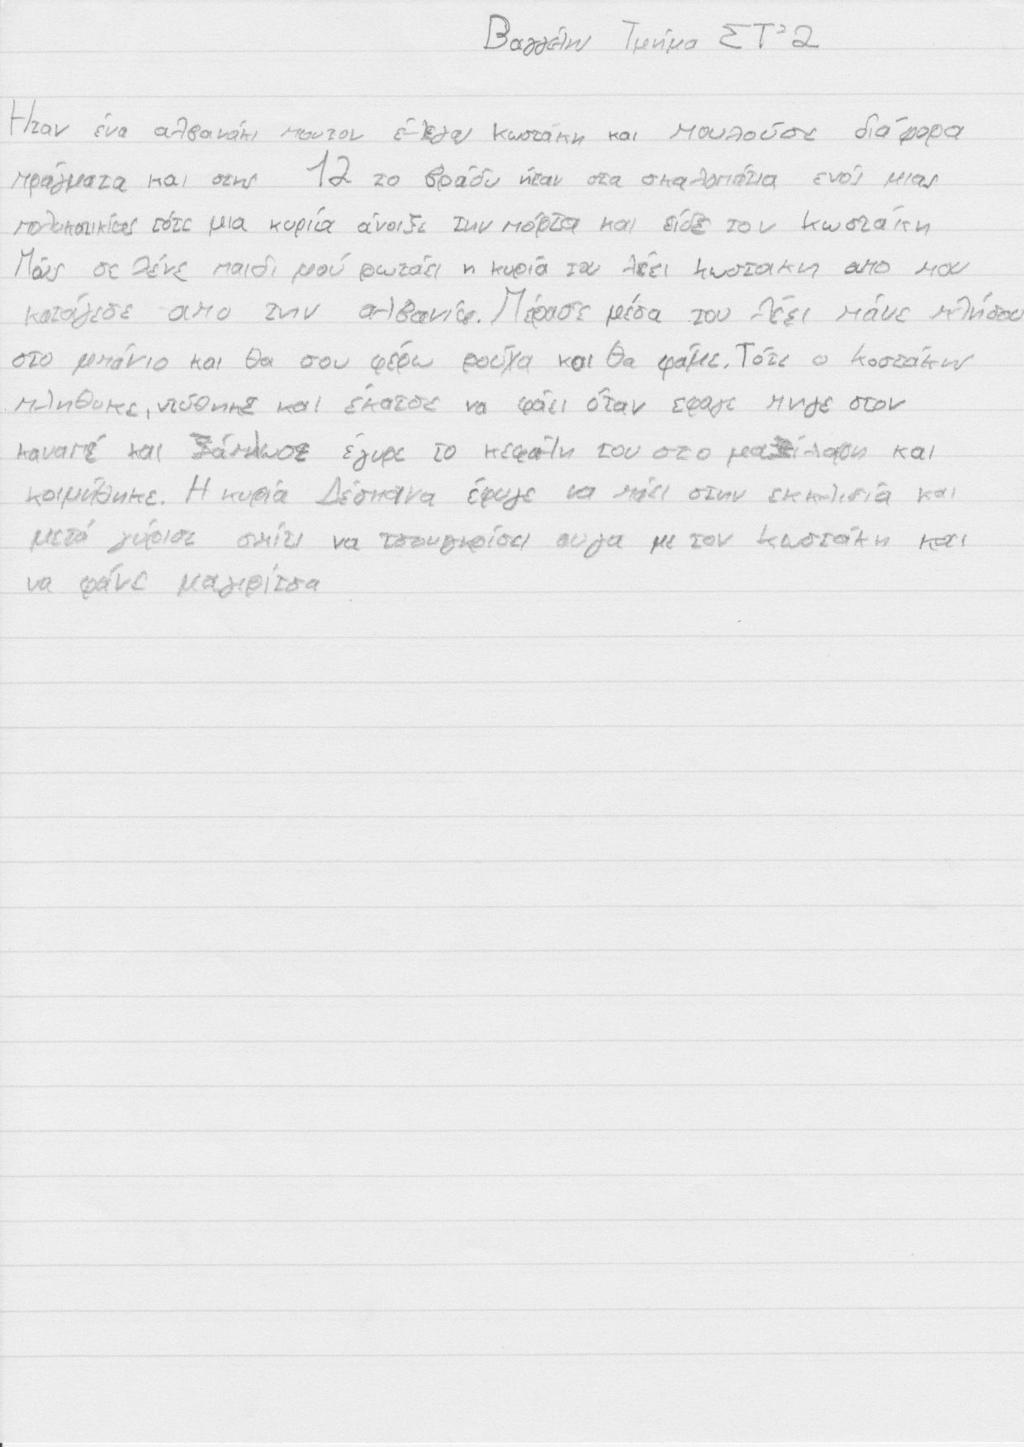 Βαγγέλης Τμήμα ΣΤ'2
Ηταν ένα αλβανάκι πουτον έλεγαν Κωστάκη και πουλούσε διάφορα
πράγματα και στης 12 το βράδυ ήταν στα σκαλοπάτια ενός μιας
πολικατικίας τότε μια κυρία άνοιξε την πόρτα και είδε τον Κωστάκη
Πώς σε λένε παιδί μού ρωτάει η κυρία του λέει Κωστακη απο που
κατάγεσε απο την αλβανία. Πέρασε μέσα του λέει πάνε πλήσου
στο μπάνιο και θα σου φέρω ρούχα και θα φάμε. Τότε ο Κοστάκης
πληθυκε, ντύθηκε και έκατσε να φάει όταν εφαγε πηγε στον
καναπέ και ξάπλωσε έγυρε το κεφάλη του στο μαξιλαρη και
κοιμήθηκε. Η κυρία Δέσπανα έφυγε να πάει στην εκκλισιά και
μετά γύρισε σπίτι να τσουγκρίσει αυγα με τον Κωστάκη και
να φάνε μαγιρίτσα